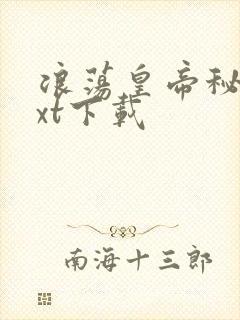 浪荡皇帝秘
xt下載
南海十三郎